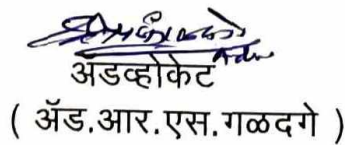 ॲडव्होकेट
( ॲड.आर.एस.गळदगे )